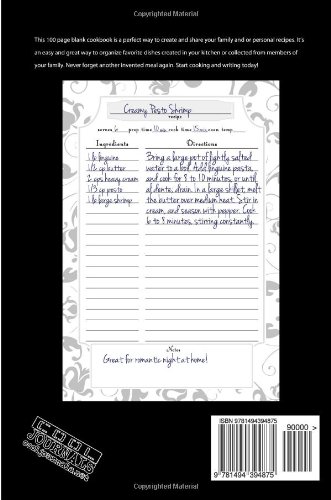 Copyrighted Material
This 100 page blank cookbook is a perfect way to create and share your family and or personal recipes. It's
an easy and great way to organize favorite dishes created in your kitchen or collected from members of
your family. Never forget another invented meal again. Start cooking and writing today!
Creamy Pesto Shrimp
recipe
serves 6 prep time 10 min cook time 15 min oven temp
Ingredients
1 lb linguine
1/2 cup butter
2 cps heavy cream
1/3 cup pesto
1 lb large shrimp
Directions
Bring a large pot of lightly salted
water to a boil. Add linguine pasta,
and cook for 8 to 10 minutes, or until
al dente, drain. In a large skillet, melt
the butter over medium heat. Stir in
cream, and season with pepper. Cook
6 to 8 minutes, stirring constantly...
Notes
Great for romantic night at home!
COOL
JOURNALS
ISBN 9781494394875
90000 >
9 781494 394875
Copyrighted Material